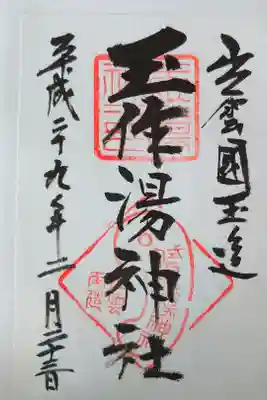 出雲國玉造
玉作湯神社
平成二十九年二月二十三日